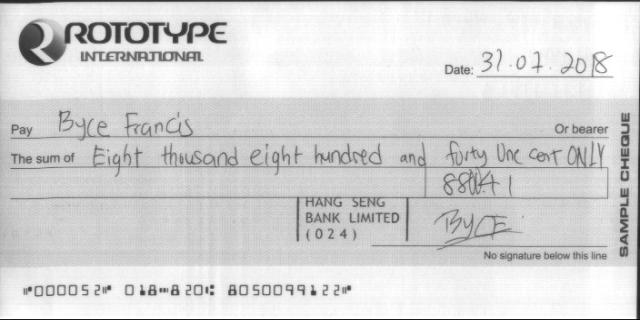 ROTOTYPE
INTERNATIONAL
Date: 31.07.2018
Pay Byce Francis Or bearer
The sum of Eight thousand eight hundred and forty One cent ONLY
HANG SENG
BANK LIMITED
(024)
BYCE
No signature below this line
SAMPLE CHEQUE
⑈000052⑈ 018⑉820⑆ 8050099122⑈